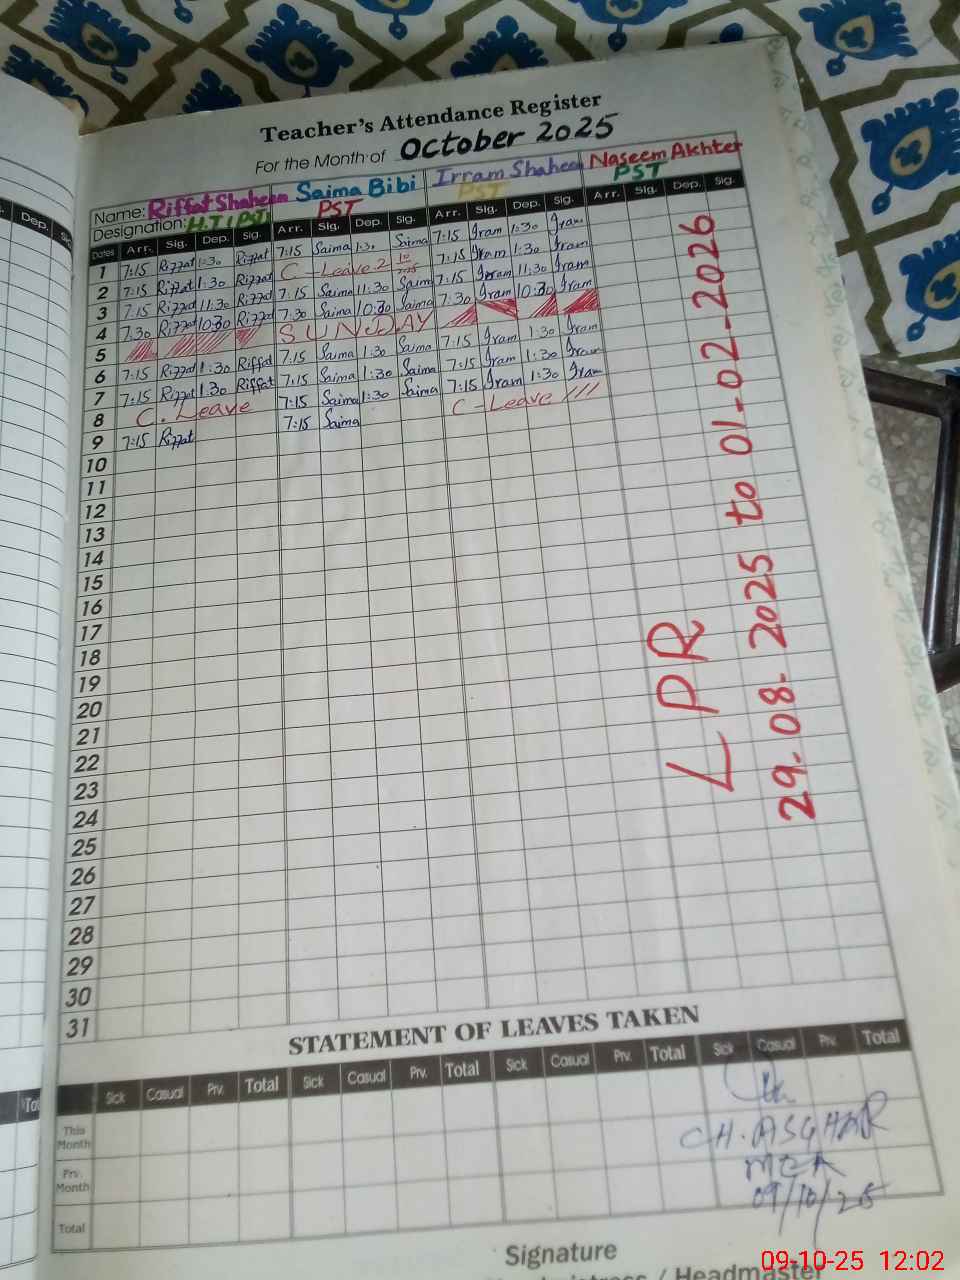 Teacher's Attendance Register
For the Month of October 2025
Name: Riffat Shaheen Saima Bibi Irram Shaheen Naseem Akhter
Designation: H.T (PST) PST PST PST
Dates Arr. Sig. Dep. Sig. Arr. Sig. Dep. Sig. Arr. Sig. Dep. Sig. Arr. Sig. Dep. Sig.
1 7:15 Riffat 1:30 Riffat 7:15 Saima 1:3. Saima 7:15 Iram 1:30 Iram
2 7:15 Riffat 1:30 Riffat C-Leave 2 10 2025 7:15 Iram 1:30 Iram
3 7:15 Riffat 11:30 Riffat 7:15 Saima 11:30 Saima 7:15 Iram 11:30 Iram
4 7:30 Riffat 10:30 Riffat 7:30 Saima 10:30 Saima 7:30 Iram 10:30 Iram
5 SUNDAY
6 7:15 Riffat 1:30 Riffat 7:15 Saima 1:30 Saima 7:15 Iram 1:30 Iram
7 7:15 Riffat 1:30 Riffat 7:15 Saima 1:30 Saima 7:15 Iram 1:30 Iram
8 C. Leave 7:15 Saima 1:30 Saima 7:15 Iram 1:30 Iram
9 7:15 Riffat 7:15 Saima C-Leave
10
11
12
13
14
15
16
17
18
19
20
21
22
23
24
25
26
27
28
29
30
31
LPR
29.08.2025 to 01-02-2026
STATEMENT OF LEAVES TAKEN
Sick Casual Prv. Total Sick Casual Prv. Total Sick Casual Prv. Total Sick Casual Prv. Total
This Month
Prv. Month
Total
CH. ASGHAR
MEA
09/10/25
Signature
/ Headmaster
09-10-25 12:02
Dep.